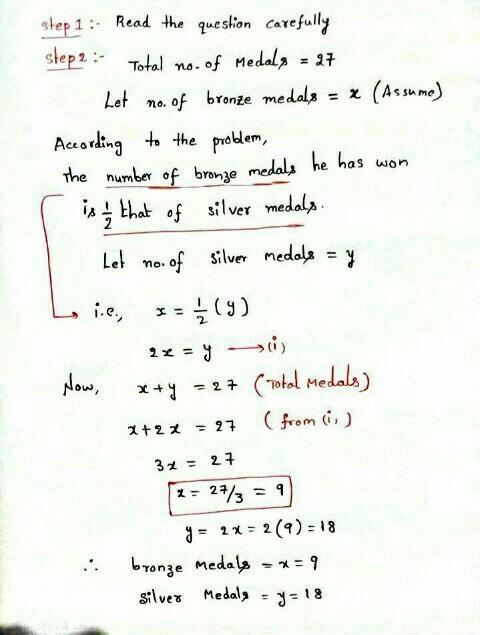 step 1 :- Read the question carefully
step 2 :- Total no. of Medals = 27
Let no. of bronze medals = x (Assume)
According to the problem,
The number of bronze medals he has won
is 1/2 that of silver medals.
Let no. of silver medals = y
i.e., x = 1/2 (y)
2x = y → (i)
Now, x + y = 27 (Total Medals)
x + 2x = 27 (from (i))
3x = 27
x = 27/3 = 9
y = 2x = 2(9) = 18
∴ bronze Medals = x = 9
Silver Medals = y = 18